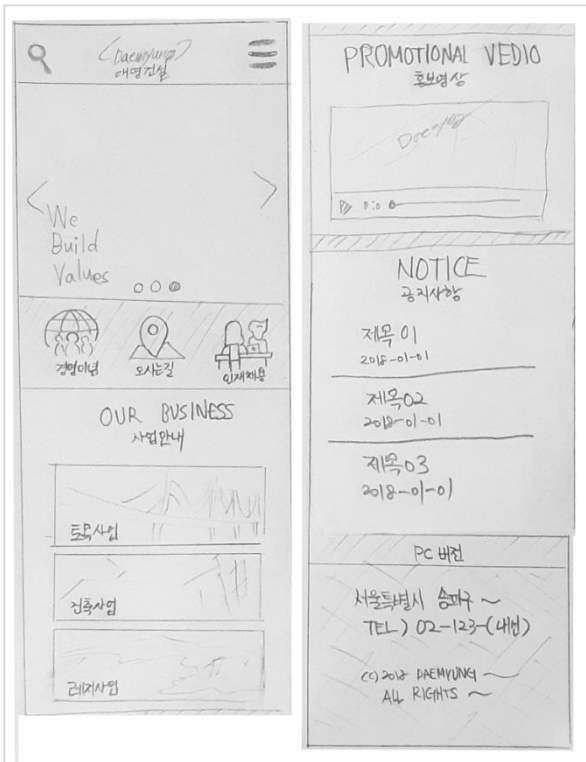 Daemyung
대명건설
We
Build
Values
경영이념
오시는길
인재채용
OUR BUSINESS
사업안내
토목사업
건축사업
레저사업
PROMOTIONAL VEDIO
홍보영상
0:0
NOTICE
공지사항
제목 01
2018-01-01
제목02
2018-01-01
제목03
2018-01-01
PC 버전
서울특별시 송파구 ~
TEL) 02-123-(내선)
(C)2018 DAEMYUNG ~
ALL RIGHTS ~